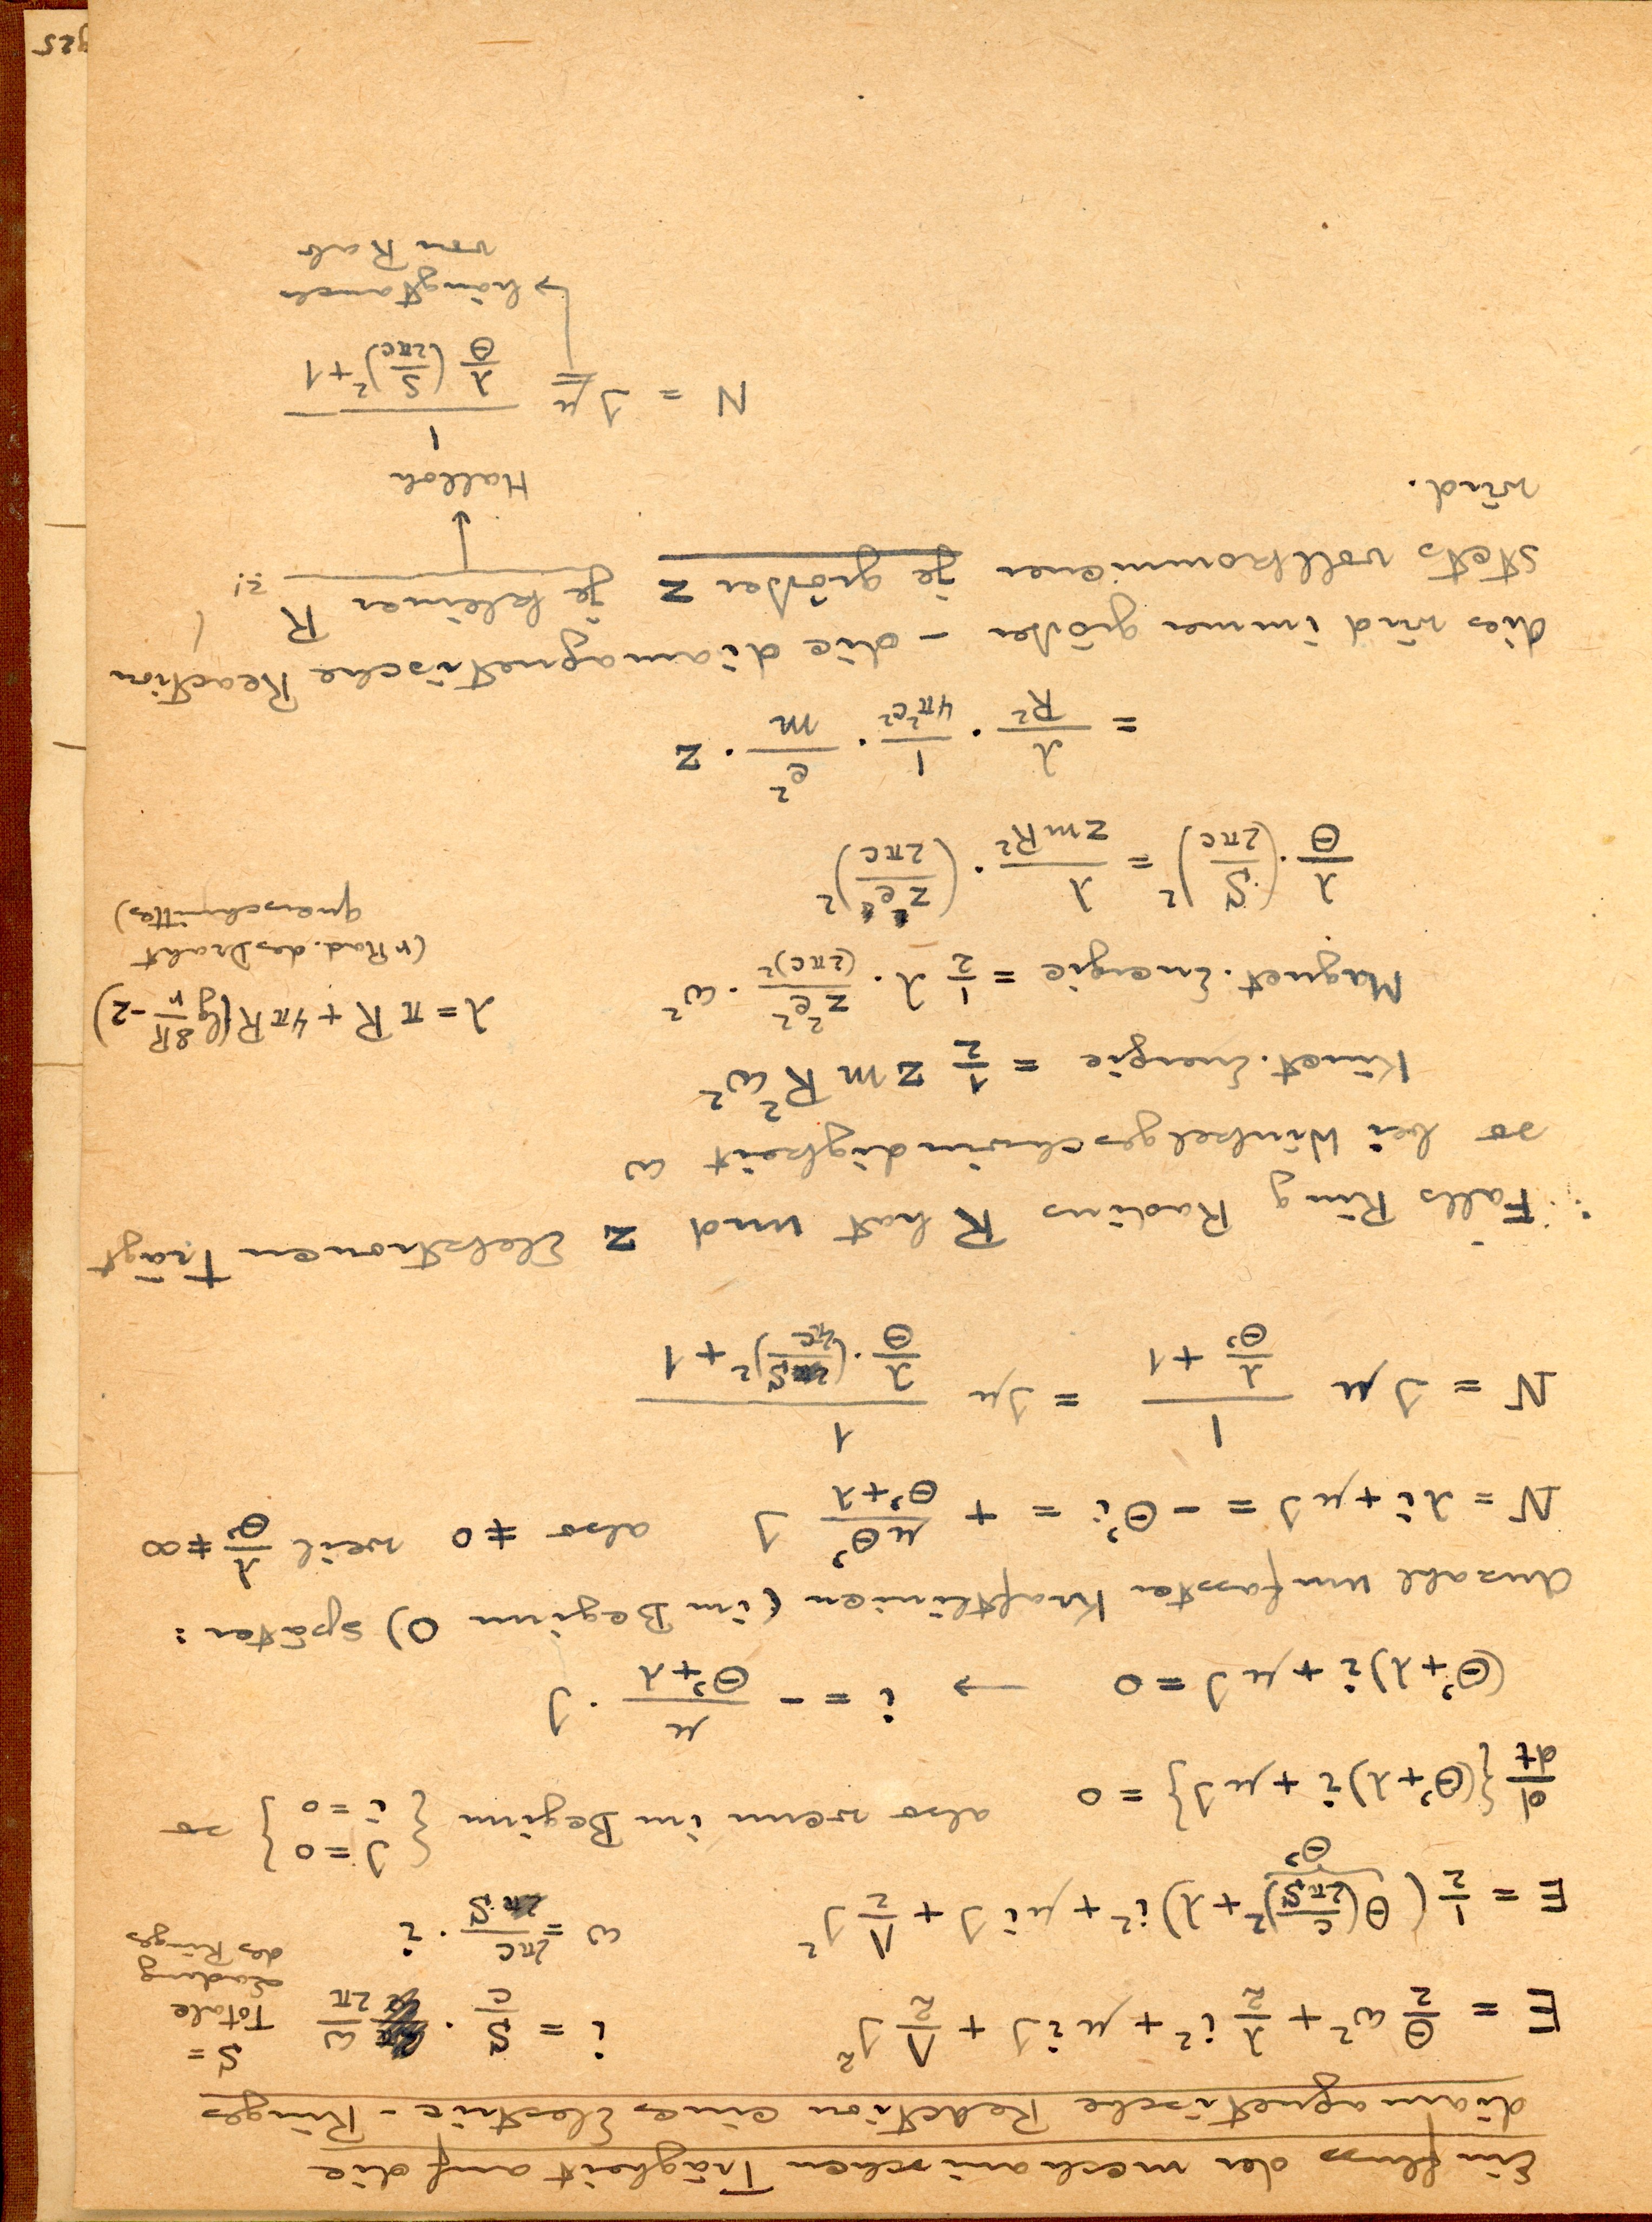 Einfluss der mechanischen Trägheit auf die
diamagnetische Reaction eines Electric-Ringes
E = Θ/2 ω² + λ/2 i² + μ i J + Λ/2 J²    i = S/c · ω/2π    S = Totale Ladung des Ringes
E = 1/2 (Θ (2πc/S)² + λ) i² + μ i J + Λ/2 J²    ω = 2πc/S · i
Θ'
d/dt {(Θ'+λ) i + μ J} = 0    also wenn im Beginn { J=0 i=0 } so
(Θ'+λ) i + μ J = 0 → i = − μ/(Θ'+λ) · J
Anzahl umfasster Kraftlinien (im Beginn 0) später:
N = λi + μJ = − Θ'i = + μΘ'/(Θ'+λ) J    also ≠ 0 weil λ/Θ' ≠ ∞
N = Jμ 1/(λ/Θ' + 1) = Jμ 1/(λ/Θ · (S/2πc)² + 1)
∴ Falls Ring Radius R hat und z Elektronen trägt
so bei Winkelgeschwindigkeit ω
Kinet. Energie = 1/2 z m R² ω²
Magnet. Energie = 1/2 λ · z²e²/(2πc)² · ω²
λ = π R + 4π R (lg 8R/r − 2)
(r Rad. des Draht
querschnittes)
λ/Θ · (S/2πc)² = λ/zmR² · (ze/2πc)²
= λ/R² · 1/4π²c² · e²/m · z
dies wird immer größer – die diamagnetische Reaction
stets vollkommener je größer z je kleiner R
wird.
Halloh
N = Jμ 1/(λ/Θ (S/2πc)² + 1)
↳ hängt auch
von R ab